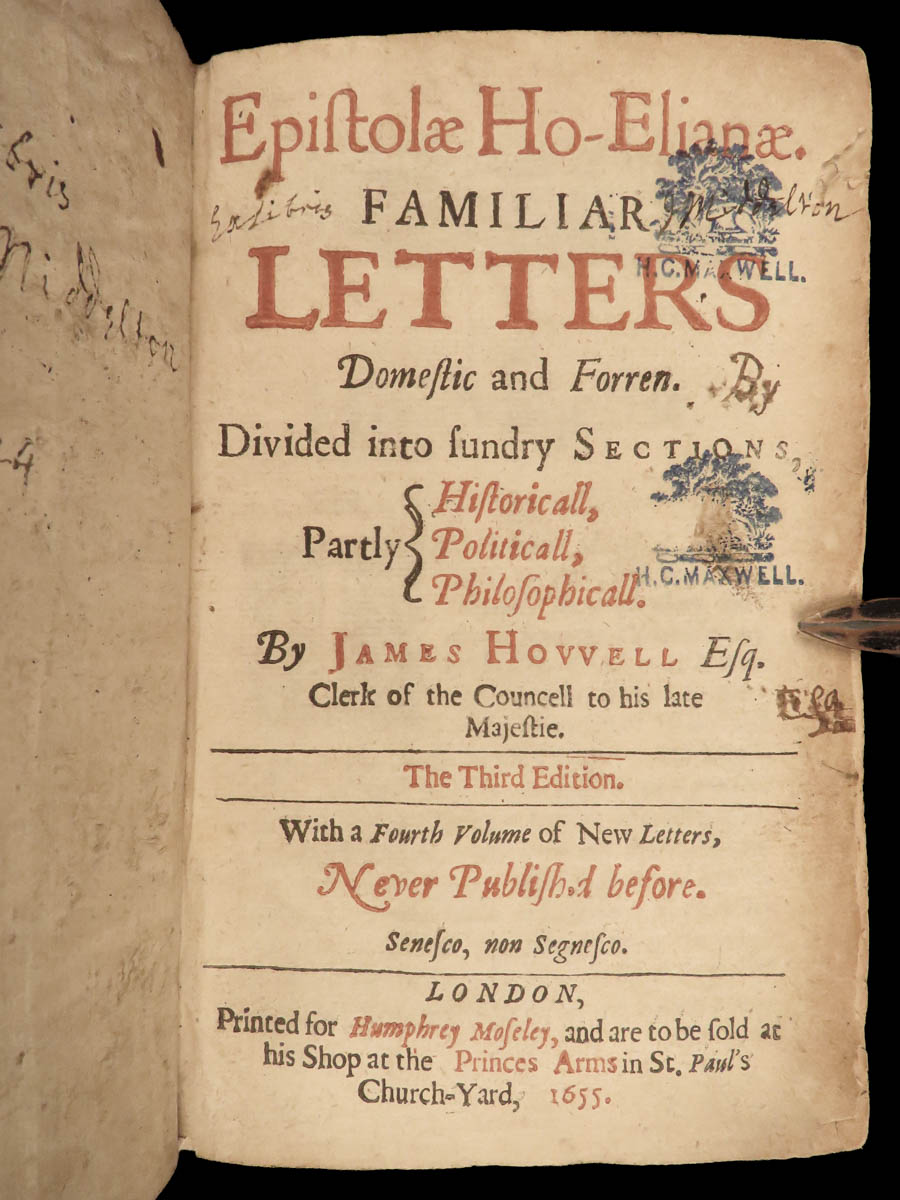 bris
Middelton
-4
Epiſtolæ Ho-Elianæ.
Exlibris
J Middelton
FAMILIAR
H.C.MAXWELL.
LETTERS
Domeſtic and Forren.
By
Divided into ſundry SECTIONS,
Partly { Hiſtoricall,
Politicall,
Philoſophicall.
H.C.MAXWELL.
By JAMES HOVVELL Eſq.
Clerk of the Councell to his late
Majeſtie.
Eſq
The Third Edition.
With a Fourth Volume of New Letters,
Never Publiſhed before.
Seneſco, non Segneſco.
LONDON,
Printed for Humphrey Moſeley, and are to be ſold at
his Shop at the Princes Arms in St. Paul's
Church-Yard, 1655.